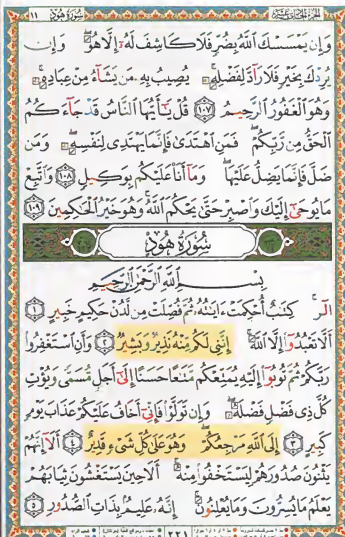 سُورَةُ هُودٍ ١١
وَإِن يَمْسَسْكَ ٱللَّهُ بِضُرٍّ فَلَا كَاشِفَ لَهُۥٓ إِلَّا هُوَ ۖ وَإِن
يُرِدْكَ بِخَيْرٍ فَلَا رَآدَّ لِفَضْلِهِۦ ۚ يُصِيبُ بِهِۦ مَن يَشَآءُ مِنْ عِبَادِهِۦ ۚ
وَهُوَ ٱلْغَفُورُ ٱلرَّحِيمُ ١٠٧ قُلْ يَٰٓأَيُّهَا ٱلنَّاسُ قَدْ جَآءَكُمُ
ٱلْحَقُّ مِن رَّبِّكُمْ ۖ فَمَنِ ٱهْتَدَىٰ فَإِنَّمَا يَهْتَدِى لِنَفْسِهِۦ ۖ وَمَن
ضَلَّ فَإِنَّمَا يَضِلُّ عَلَيْهَا ۖ وَمَآ أَنَا۠ عَلَيْكُم بِوَكِيلٍ ١٠٨ وَٱتَّبِعْ
مَا يُوحَىٰٓ إِلَيْكَ وَٱصْبِرْ حَتَّىٰ يَحْكُمَ ٱللَّهُ ۚ وَهُوَ خَيْرُ ٱلْحَٰكِمِينَ ١٠٩
سُورَةُ هُودٍ
بِسْمِ ٱللَّهِ ٱلرَّحْمَٰنِ ٱلرَّحِيمِ
الٓر ۚ كِتَٰبٌ أُحْكِمَتْ ءَايَٰتُهُۥ ثُمَّ فُصِّلَتْ مِن لَّدُنْ حَكِيمٍ خَبِيرٍ ١
أَلَّا تَعْبُدُوٓا۟ إِلَّا ٱللَّهَ ۚ إِنَّنِى لَكُم مِّنْهُ نَذِيرٌ وَبَشِيرٌ ٢ وَأَنِ ٱسْتَغْفِرُوا۟
رَبَّكُمْ ثُمَّ تُوبُوٓا۟ إِلَيْهِ يُمَتِّعْكُم مَّتَٰعًا حَسَنًا إِلَىٰٓ أَجَلٍ مُّسَمًّى وَيُؤْتِ
كُلَّ ذِى فَضْلٍ فَضْلَهُۥ ۖ وَإِن تَوَلَّوْا۟ فَإِنِّىٓ أَخَافُ عَلَيْكُمْ عَذَابَ يَوْمٍ
كَبِيرٍ ٣ إِلَى ٱللَّهِ مَرْجِعُكُمْ ۖ وَهُوَ عَلَىٰ كُلِّ شَىْءٍ قَدِيرٌ ٤ أَلَآ إِنَّهُمْ
يَثْنُونَ صُدُورَهُمْ لِيَسْتَخْفُوا۟ مِنْهُ ۚ أَلَا حِينَ يَسْتَغْشُونَ ثِيَابَهُمْ
يَعْلَمُ مَا يُسِرُّونَ وَمَا يُعْلِنُونَ ۚ إِنَّهُۥ عَلِيمٌۢ بِذَاتِ ٱلصُّدُورِ ٥
٢٢١